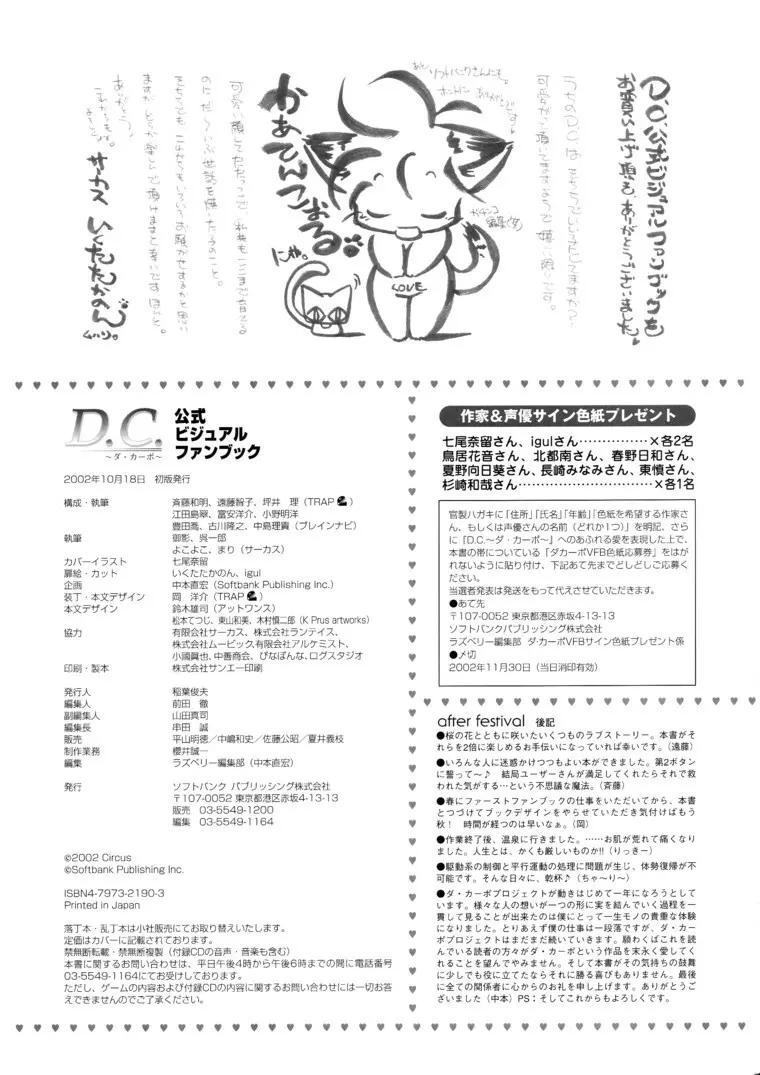 D.C.公式ビジュアルファンブックを
お買い上げ頂き、ありがとうございました
かあてんこおる
にゃ。
LOVE
サーカス いくたたかのん。
D.C.
～ダ・カーポ～
公式
ビジュアル
ファンブック
2002年10月18日 初版発行
構成・執筆 斉藤和明、遠藤智子、坪井 理（TRAP）
江田島翠、富安洋介、小野明洋
豊田喬、古川隆之、中島理貴（ブレインナビ）
執筆 御影、呉一郎
よこよこ、まり（サーカス）
カバーイラスト 七尾奈留
扉絵・カット いくたたかのん、igul
企画 中本直宏（Softbank Publishing Inc.）
装丁・本文デザイン 岡 洋介（TRAP）
本文デザイン 鈴木雄司（アットワンス）
松本てつじ、東山和美、木村慎二郎（K Prus artworks）
協力 有限会社サーカス、株式会社ランティス、
株式会社ムービック、有限会社アルケミスト、
小國眞也、中善商会、ぴなぽんな、ログスタジオ
印刷・製本 株式会社サンエー印刷
発行人 稲葉俊夫
編集人 前田 徹
副編集人 山田真司
編集長 串田 誠
販売 平山明徳／中嶋和史／佐藤公昭／夏井義枝
制作業務 櫻井誠一
編集 ラズベリー編集部（中本直宏）
発行 ソフトバンク パブリッシング株式会社
〒107-0052 東京都港区赤坂4-13-13
販売 03-5549-1200
編集 03-5549-1164
©2002 Circus
©Softbank Publishing Inc.
ISBN4-7973-2190-3
Printed in Japan
落丁本・乱丁本は小社販売にてお取り替えいたします。
定価はカバーに記載されております。
禁無断転載・禁無断複製（付録CDの音声・音楽も含む）
本書に関するお問い合わせは、平日午後4時から午後6時までの間に電話番号
03-5549-1164にてお受けします。
ただし、ゲームの内容および付録CDの内容に関するお問い合わせには一切お答
えできませんのでご了承ください。
作家&声優サイン色紙プレゼント
七尾奈留さん、igulさん……………×各2名
鳥居花音さん、北都南さん、春野日和さん、
夏野向日葵さん、長崎みなみさん、東慎さん、
杉崎和哉さん…………………………×各1名
官製ハガキに「住所」「氏名」「年齢」「色紙を希望する作家さ
ん、もしくは声優さんの名前（どれか1つ）」を明記、さら
に『D.C.～ダ・カーポ～』へのあふれる愛を表現した上で、
本書の帯についている「ダカーポVFB色紙応募券」をはが
れないように貼り付け、下記あて先までどしどしご応募く
ださい。
当選者発表は発送をもって代えさせていただきます。
●あて先
〒107-0052 東京都港区赤坂4-13-13
ソフトバンクパブリッシング株式会社
ラズベリー編集部 ダ・カーポVFBサイン色紙プレゼント係
●〆切
2002年11月30日（当日消印有効）
after festival 後記
●桜の花とともに咲いたいくつものラブストーリー。本書がそ
れらを2倍に楽しめるお手伝いになっていれば幸いです。（遠藤）
●いろんな人に迷惑かけつつもよい本ができました。第2ボタン
に誓って～♪ 結局ユーザーさんが満足してくれたらそれで救
われた気がする…という不思議な魔法。（斉藤）
●春にファーストファンブックの仕事をいただいてから、本書
とつづけてブックデザインをやらせていただき気付けばもう
秋！ 時間が経つのは早いなぁ。（岡）
●作業終了後、温泉に行きました。……お肌が荒れて痛くなり
ました。人生とは、かくも厳しいものか!!（りっきー）
●駆動系の制御と平行運動の処理に問題が生じ、体勢復帰が不
可能です。そんな日々に、乾杯♪（ちゃ～り～）
●ダ・カーポプロジェクトが動きはじめて一年になろうとして
います。様々な人の想いが一つの形に実を結んでいく過程を一
貫して見ることが出来たのは僕にとって一生モノの貴重な体験
になりました。とりあえず僕の仕事は一段落ですが、ダ・カー
ポプロジェクトはまだまだ続いていきます。願わくばこれを読
んでいる読者の方々がダ・カーポという作品を末永く愛してく
れることを望んでやみません。そして本書がその気持ちの鼓舞
に少しでも役に立てたならそれに勝る喜びもありません。最後
に全ての関係者に心からのお礼を申し上げます。ありがとうご
ざいました（中本）PS：そしてこれからもよろしくです。